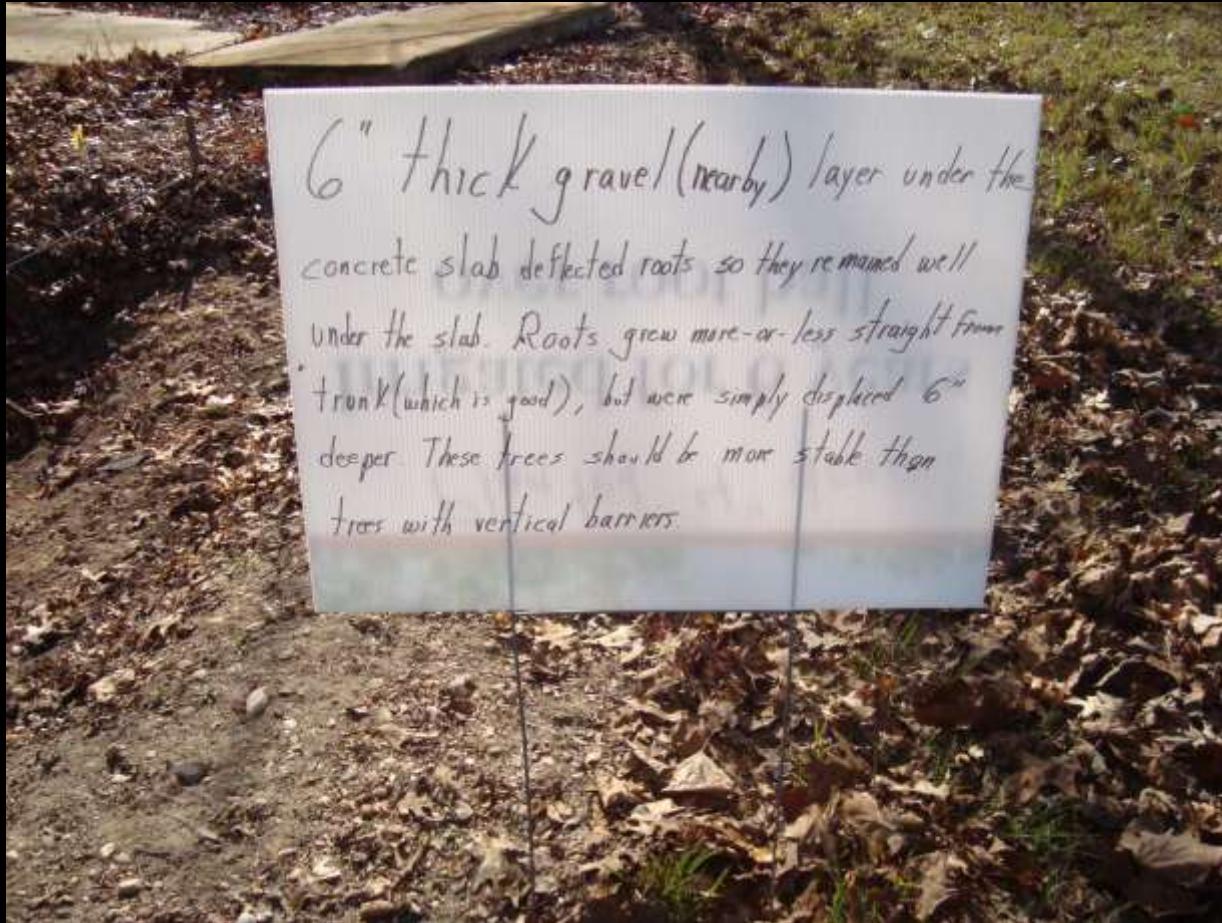 6" thick gravel (nearby) layer under the
concrete slab deflected roots so they remained well
under the slab. Roots grew more-or-less straight from
trunk (which is good), but were simply displaced 6"
deeper. These trees should be more stable than
trees with vertical barriers.